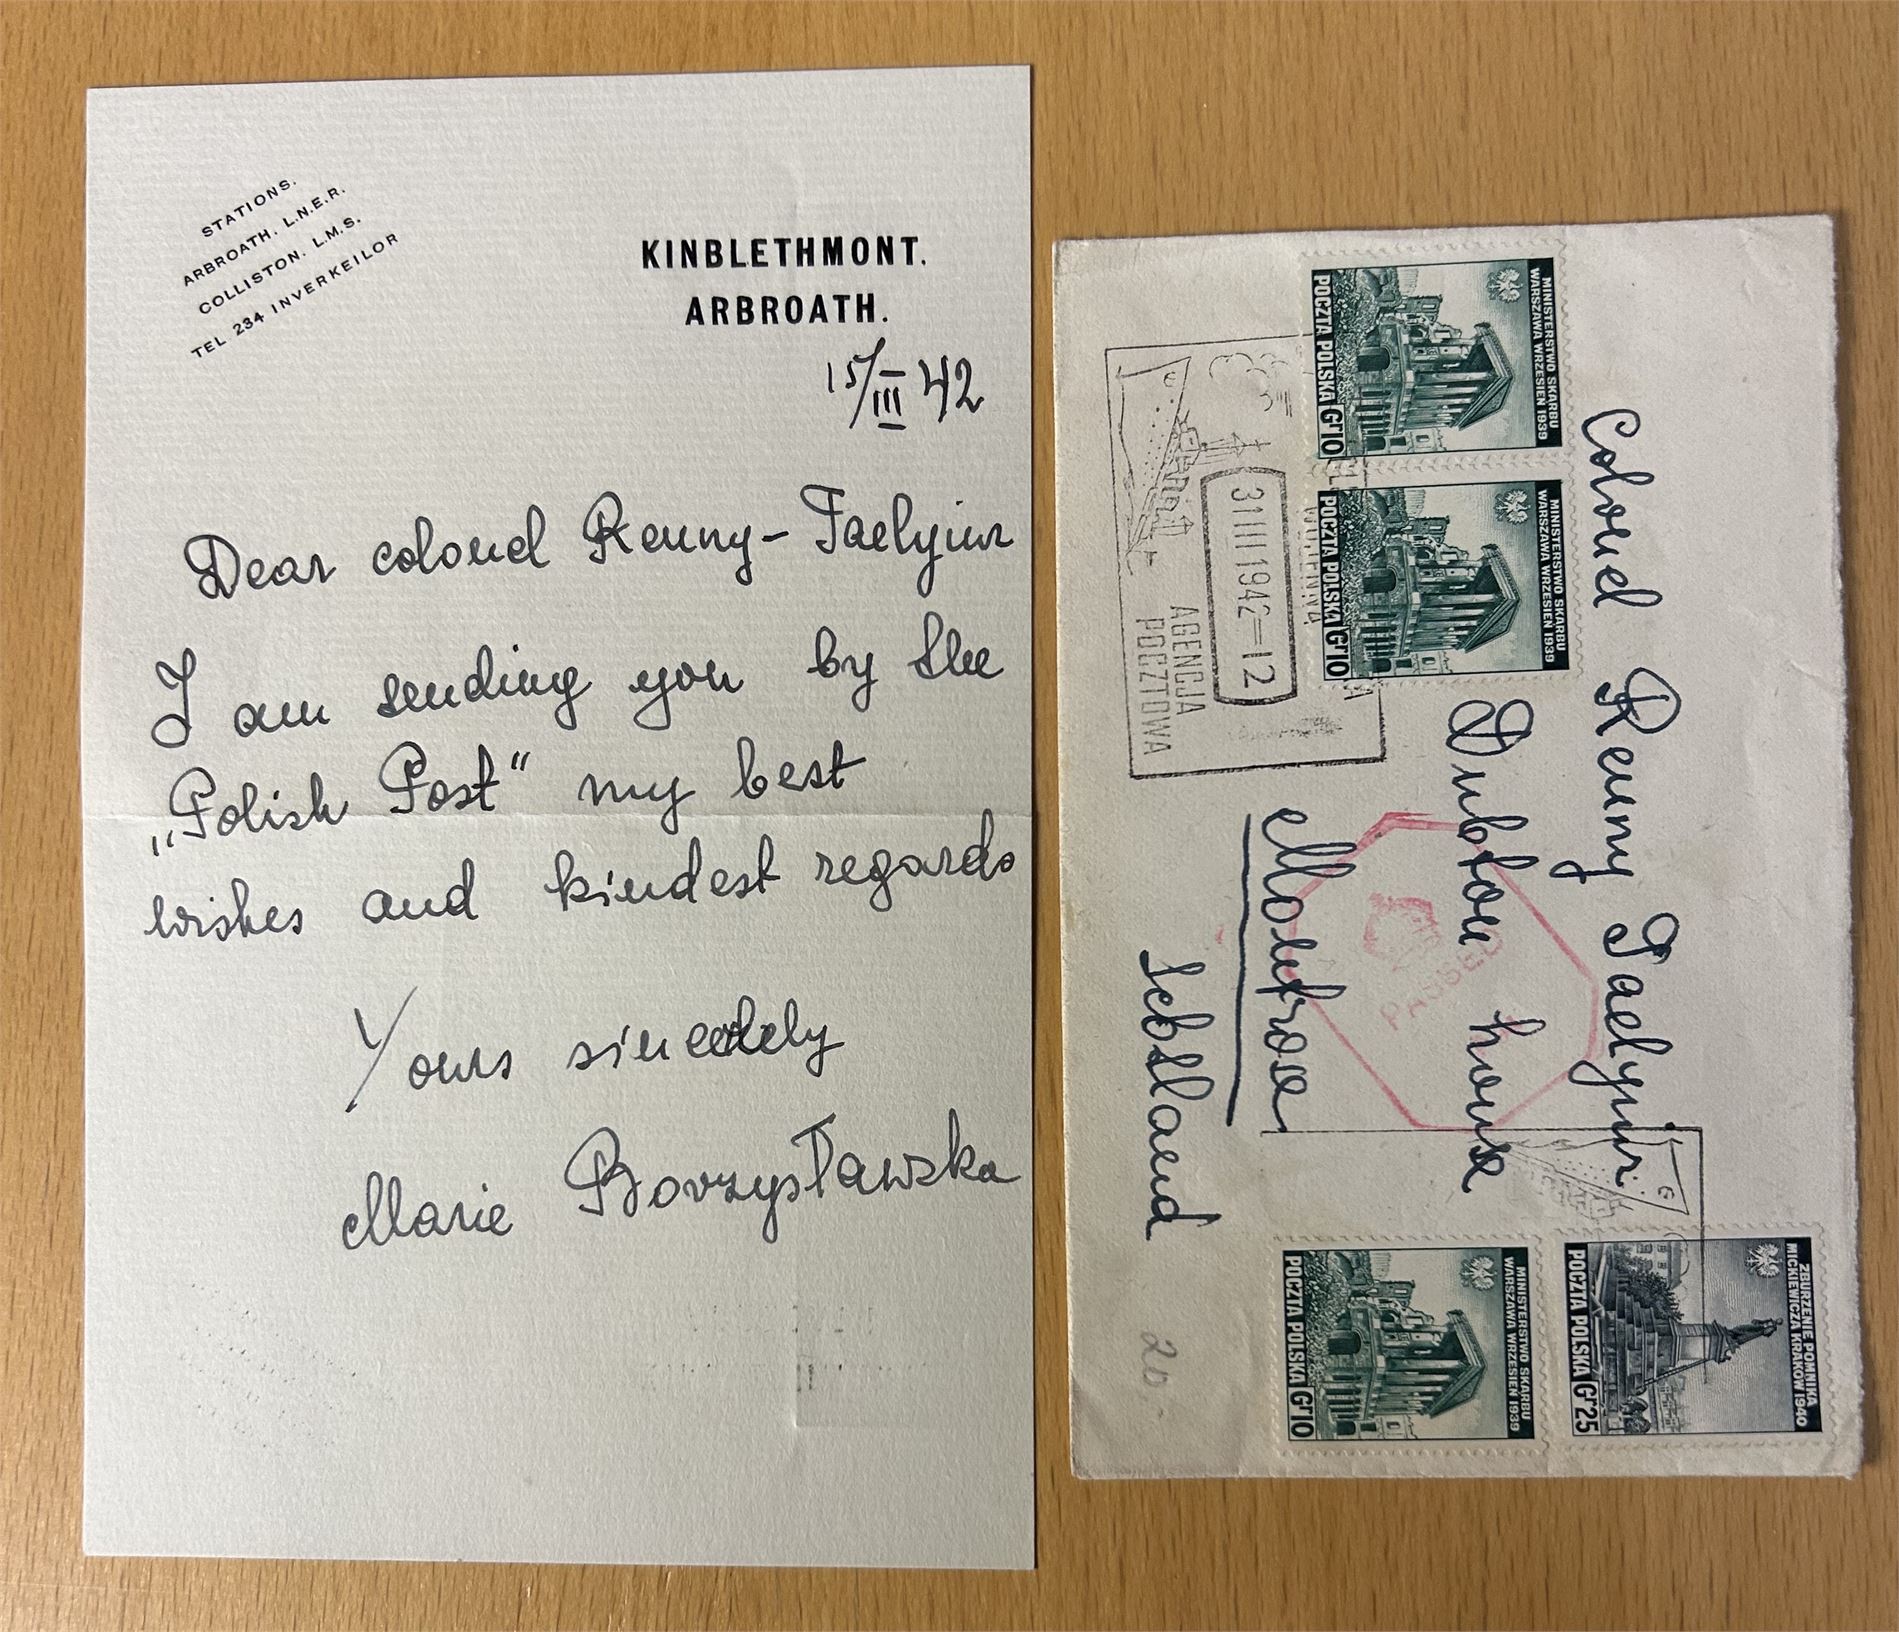 STATIONS.
ARBROATH. L.N.E.R.
COLLISTON. L.M.S.
TEL 234 INVERKEILOR
KINBLETHMONT.
ARBROATH.
15/III 42
Dear colonel Renny-Taelyiur
I am sending you by the
„Polish Post“ my best
wishes and kindest regards
Yours sincerely
Marie Borzysławska
MINISTERSTWO SKARBU
WARSZAWA WRZESIEŃ 1939
POCZTA POLSKA Gr10
MINISTERSTWO SKARBU
WARSZAWA WRZESIEŃ 1939
POCZTA POLSKA Gr10
AGENCJA
POCZTOWA
31 III 1942-12
Colonel Renny Taelyiur
Dubton house
Montrose
Scotland
PASSED
ZBURZENIE POMNIKA
MICKIEWICZA KRAKÓW 1940
POCZTA POLSKA Gr25
MINISTERSTWO SKARBU
WARSZAWA WRZESIEŃ 1939
POCZTA POLSKA Gr10
20,-